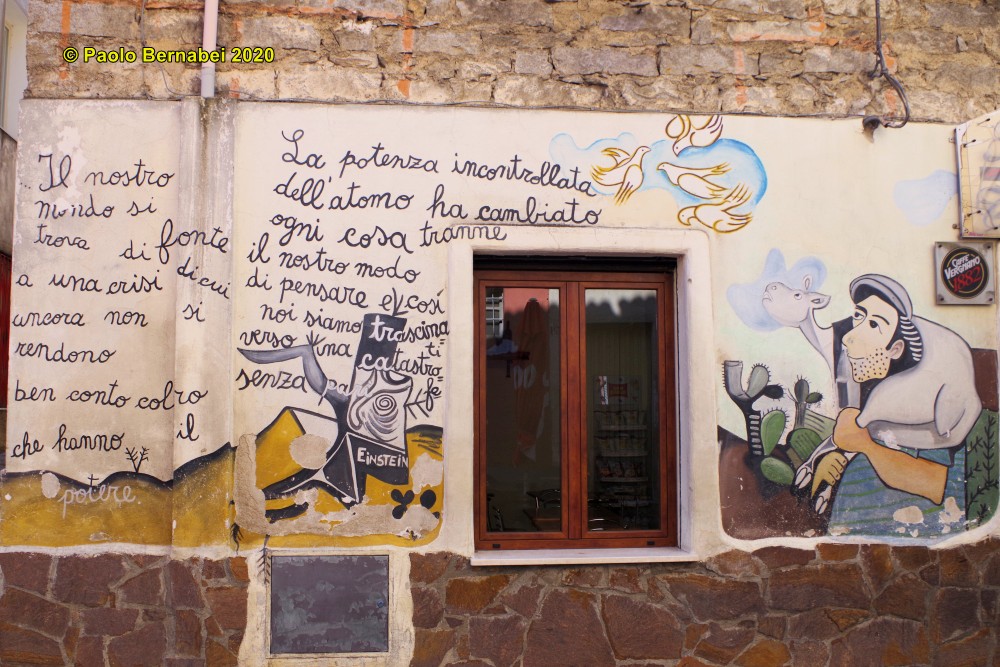 © Paolo Bernabei 2020
... Il nostro
mondo si
trova di fonte
a una crisi di cui
ancora non si
rendono
ben conto coloro
che hanno il
potere.
La potenza incontrollata
dell'atomo ha cambiato
ogni cosa tranne
il nostro modo
di pensare e così
noi siamo trascina
ti
verso una catastro-
fe
senza
EINSTEIN
CAFFÈ
VERGNANO
1882